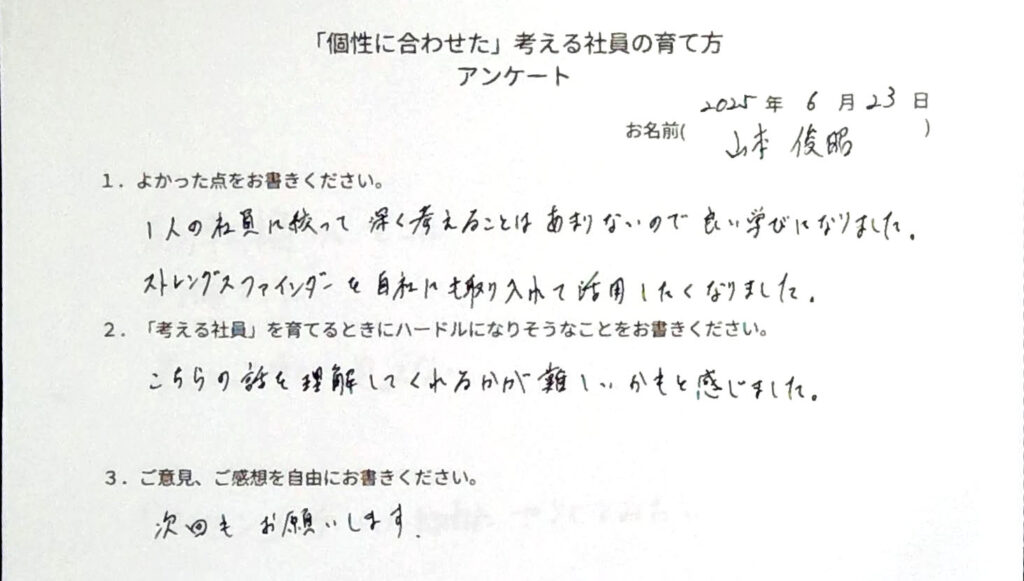 「個性に合わせた」考える社員の育て方
アンケート
2025 年 6 月 23 日
お名前( 山本 俊昭 )
1．よかった点をお書きください。
1人の社員に絞って 深く考えることは あまりないので 良い学びになりました。
ストレングスファインダーを 自社にも取り入れて 活用したくなりました。
2．「考える社員」を育てるときにハードルになりそうなことをお書きください。
こちらの話を理解してくれるかが難しいかもと感じました。
3．ご意見、ご感想を自由にお書きください。
次回も お願いします.